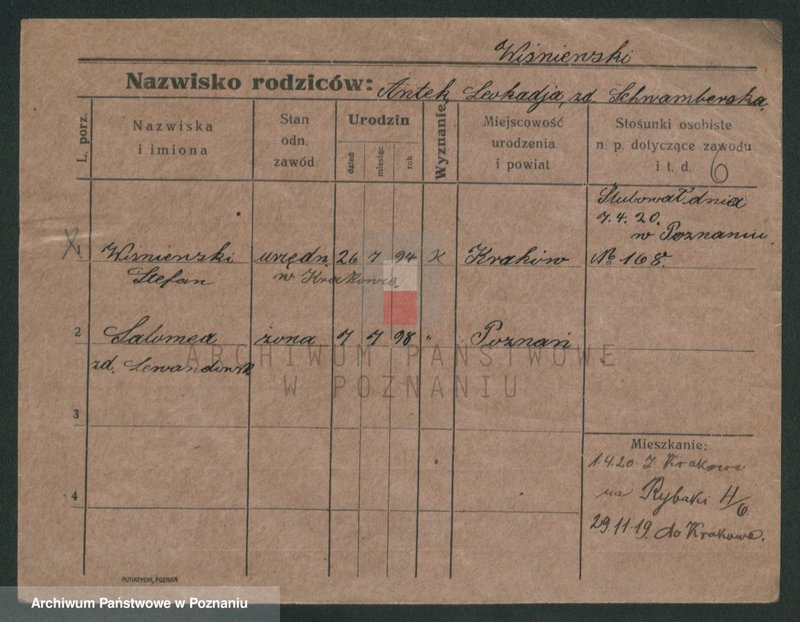 Wiśniewski
Nazwisko rodziców: Antek, Leokadja, zd. Schwamberska,
L. porz.
Nazwiska
i imiona
Stan
odn.
zawód
Urodzin
dzień
miesiąc
rok
Wyznanie
Miejscowość
urodzenia
i powiat
Stosunki osobiste
n. p. dotyczące zawodu
i t. d. 6
Ślubował dnia
7.4.20.
w Poznaniu
№ 168.
Wiśniewski urzędn. 26 7 94 K Kraków
Stefan w Krakowie,
2 Salomea żona 7 7 98 " Poznań
zd. Lewandowsk
ARCHIWUM PAŃSTWOWE
W POZNANIU
3
4
Mieszkanie:
1.4.20. Z Krakowa
na Rybaki 11/6.
29.11.19. do Krakowa.
PUTIATYCKI, POZNAŃ
Archiwum Państwowe w Poznaniu